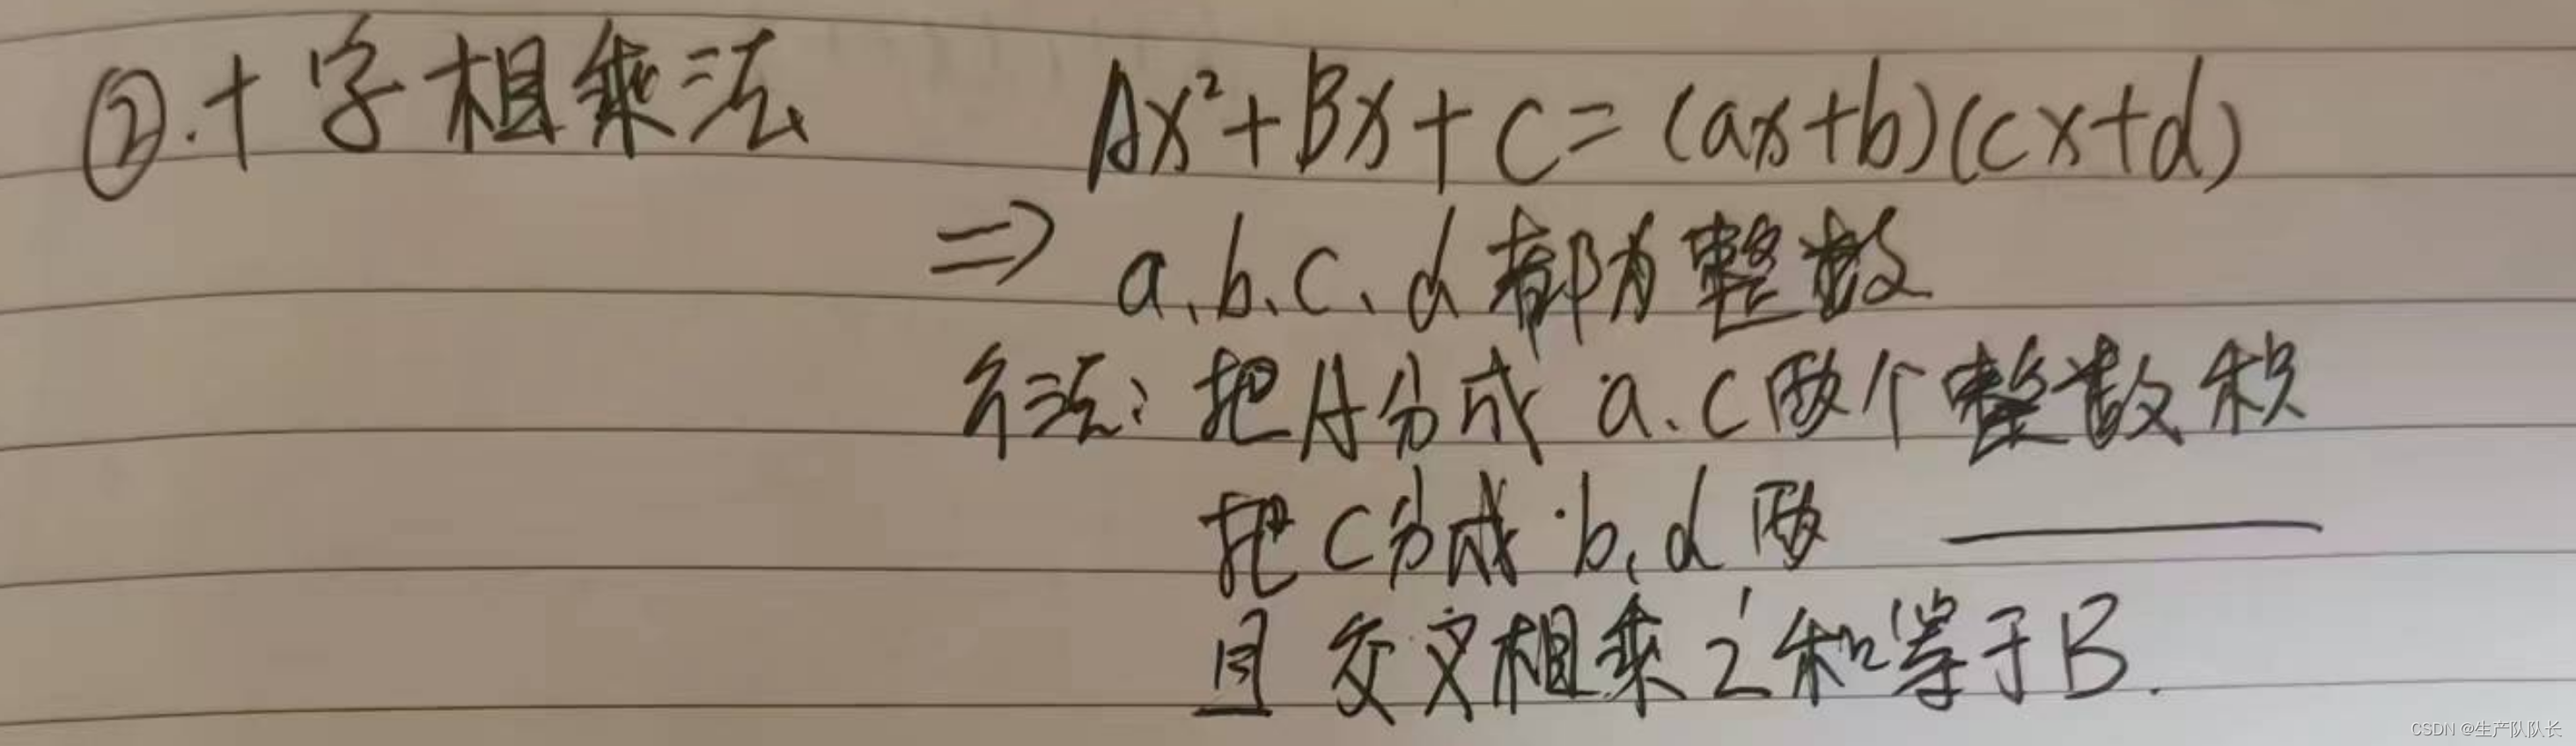 ②.十字相乘法 Ax²+Bx+C=(ax+b)(cx+d)
⇒ a、b、c、d都为整数
方法：把A分成 a、c两个整数积
把C分成 b、d两 ———
且交叉相乘之和等于B.
CSDN @生产队队长